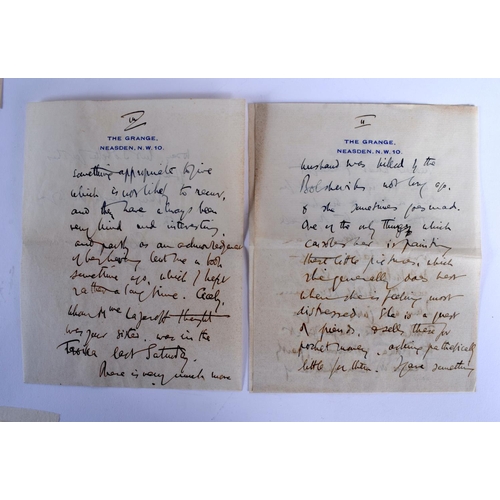 THE GRANGE,
NEASDEN, N.W. 10.
something appropriate to give
which is not likely to recur,
and they have always been
very kind and interesting.
and partly as an
of lent me a book
some time ago, which I kept
rather a long time. Cecily,
whom
was your sister, was in the
last Saturday.
There is very much more
II
THE GRANGE,
NEASDEN, N.W. 10.
husband was killed by the
Bolsheviks not long ago.
& she sometimes goes mad.
One of the only things which
her is painting
these little pictures, which
she generally does best
when she is feeling most
distressed. She is a guest
of friends, & sells these for
pocket money, asking pathetically
little for them. I gave something